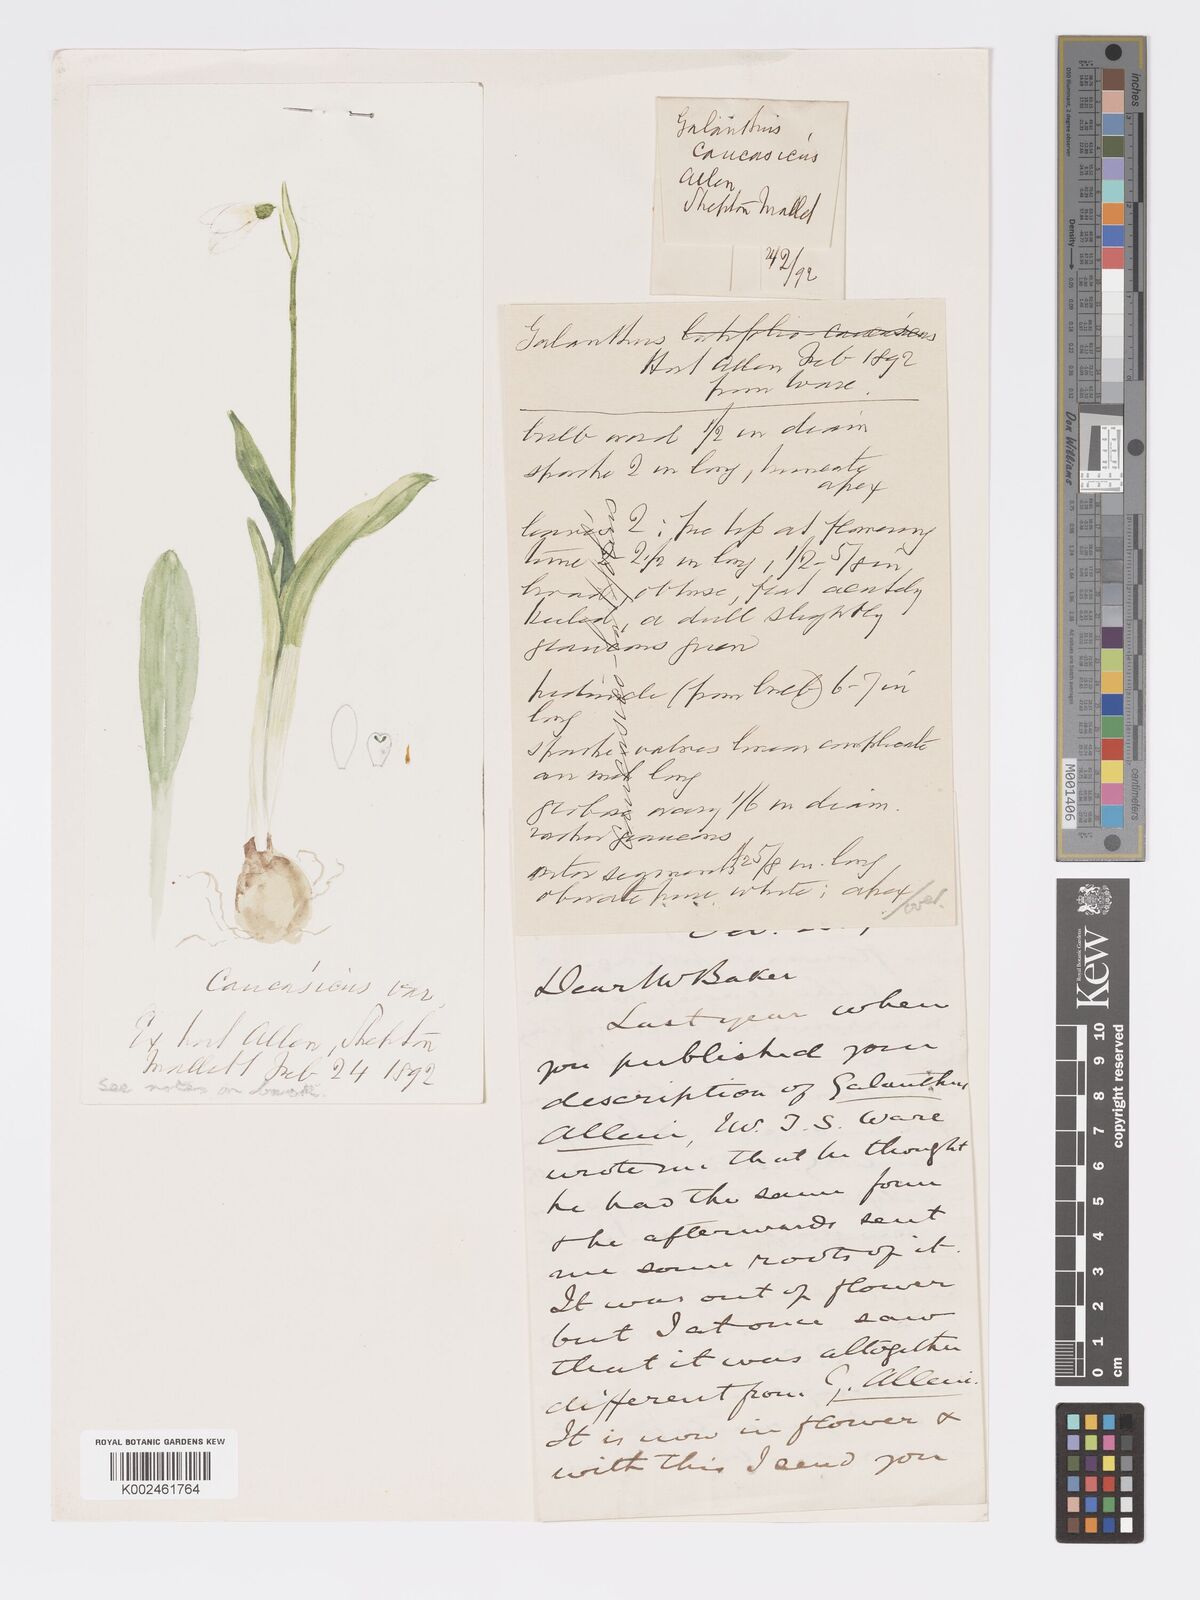 Galanthus
caucasicus
Allen,
Shepton Mallet
42/92
Galanthus latifolio-caucasicus
Hort Allen Feb 1892
from Ware.
bulb ovoid 1/2 in diam
spathe 2 in long, truncate
apex
leaves 2; tip at flowering
time 2-2 1/2 in long, 1/2-5/8 in
broad, obtuse, flat acutely
keeled, a dull slightly
glaucous green
peduncle (from bulb) 6-7 in
long
spathe valves linear complicate
an inch long
globose ovary 1/6 in diam.
rather glaucous
outer segments 5/8 in. long
obovate pure white; apex
/over.
Dear Mr Baker
Last year when
you published your
description of Galanthus
Alleni, Mr. T. S. Ware
wrote me that he thought
he had the same form
& he afterwards sent
me some roots of it.
It was out of flower
but I at once saw
that it was altogether
different from G. Alleni.
It is now in flower &
with this I send you
Caucásicus var.
Ex hort Allen, Shepton
Mallett Feb 24 1892
see notes on back.
ROYAL BOTANIC GARDENS KEW
K002461764
inches
centimeters
Density
Don Williams
M001406
Royal Botanic Gardens
Kew
copyright reserved
0 1 2 3 4 5 6 7 8 9 10
cm